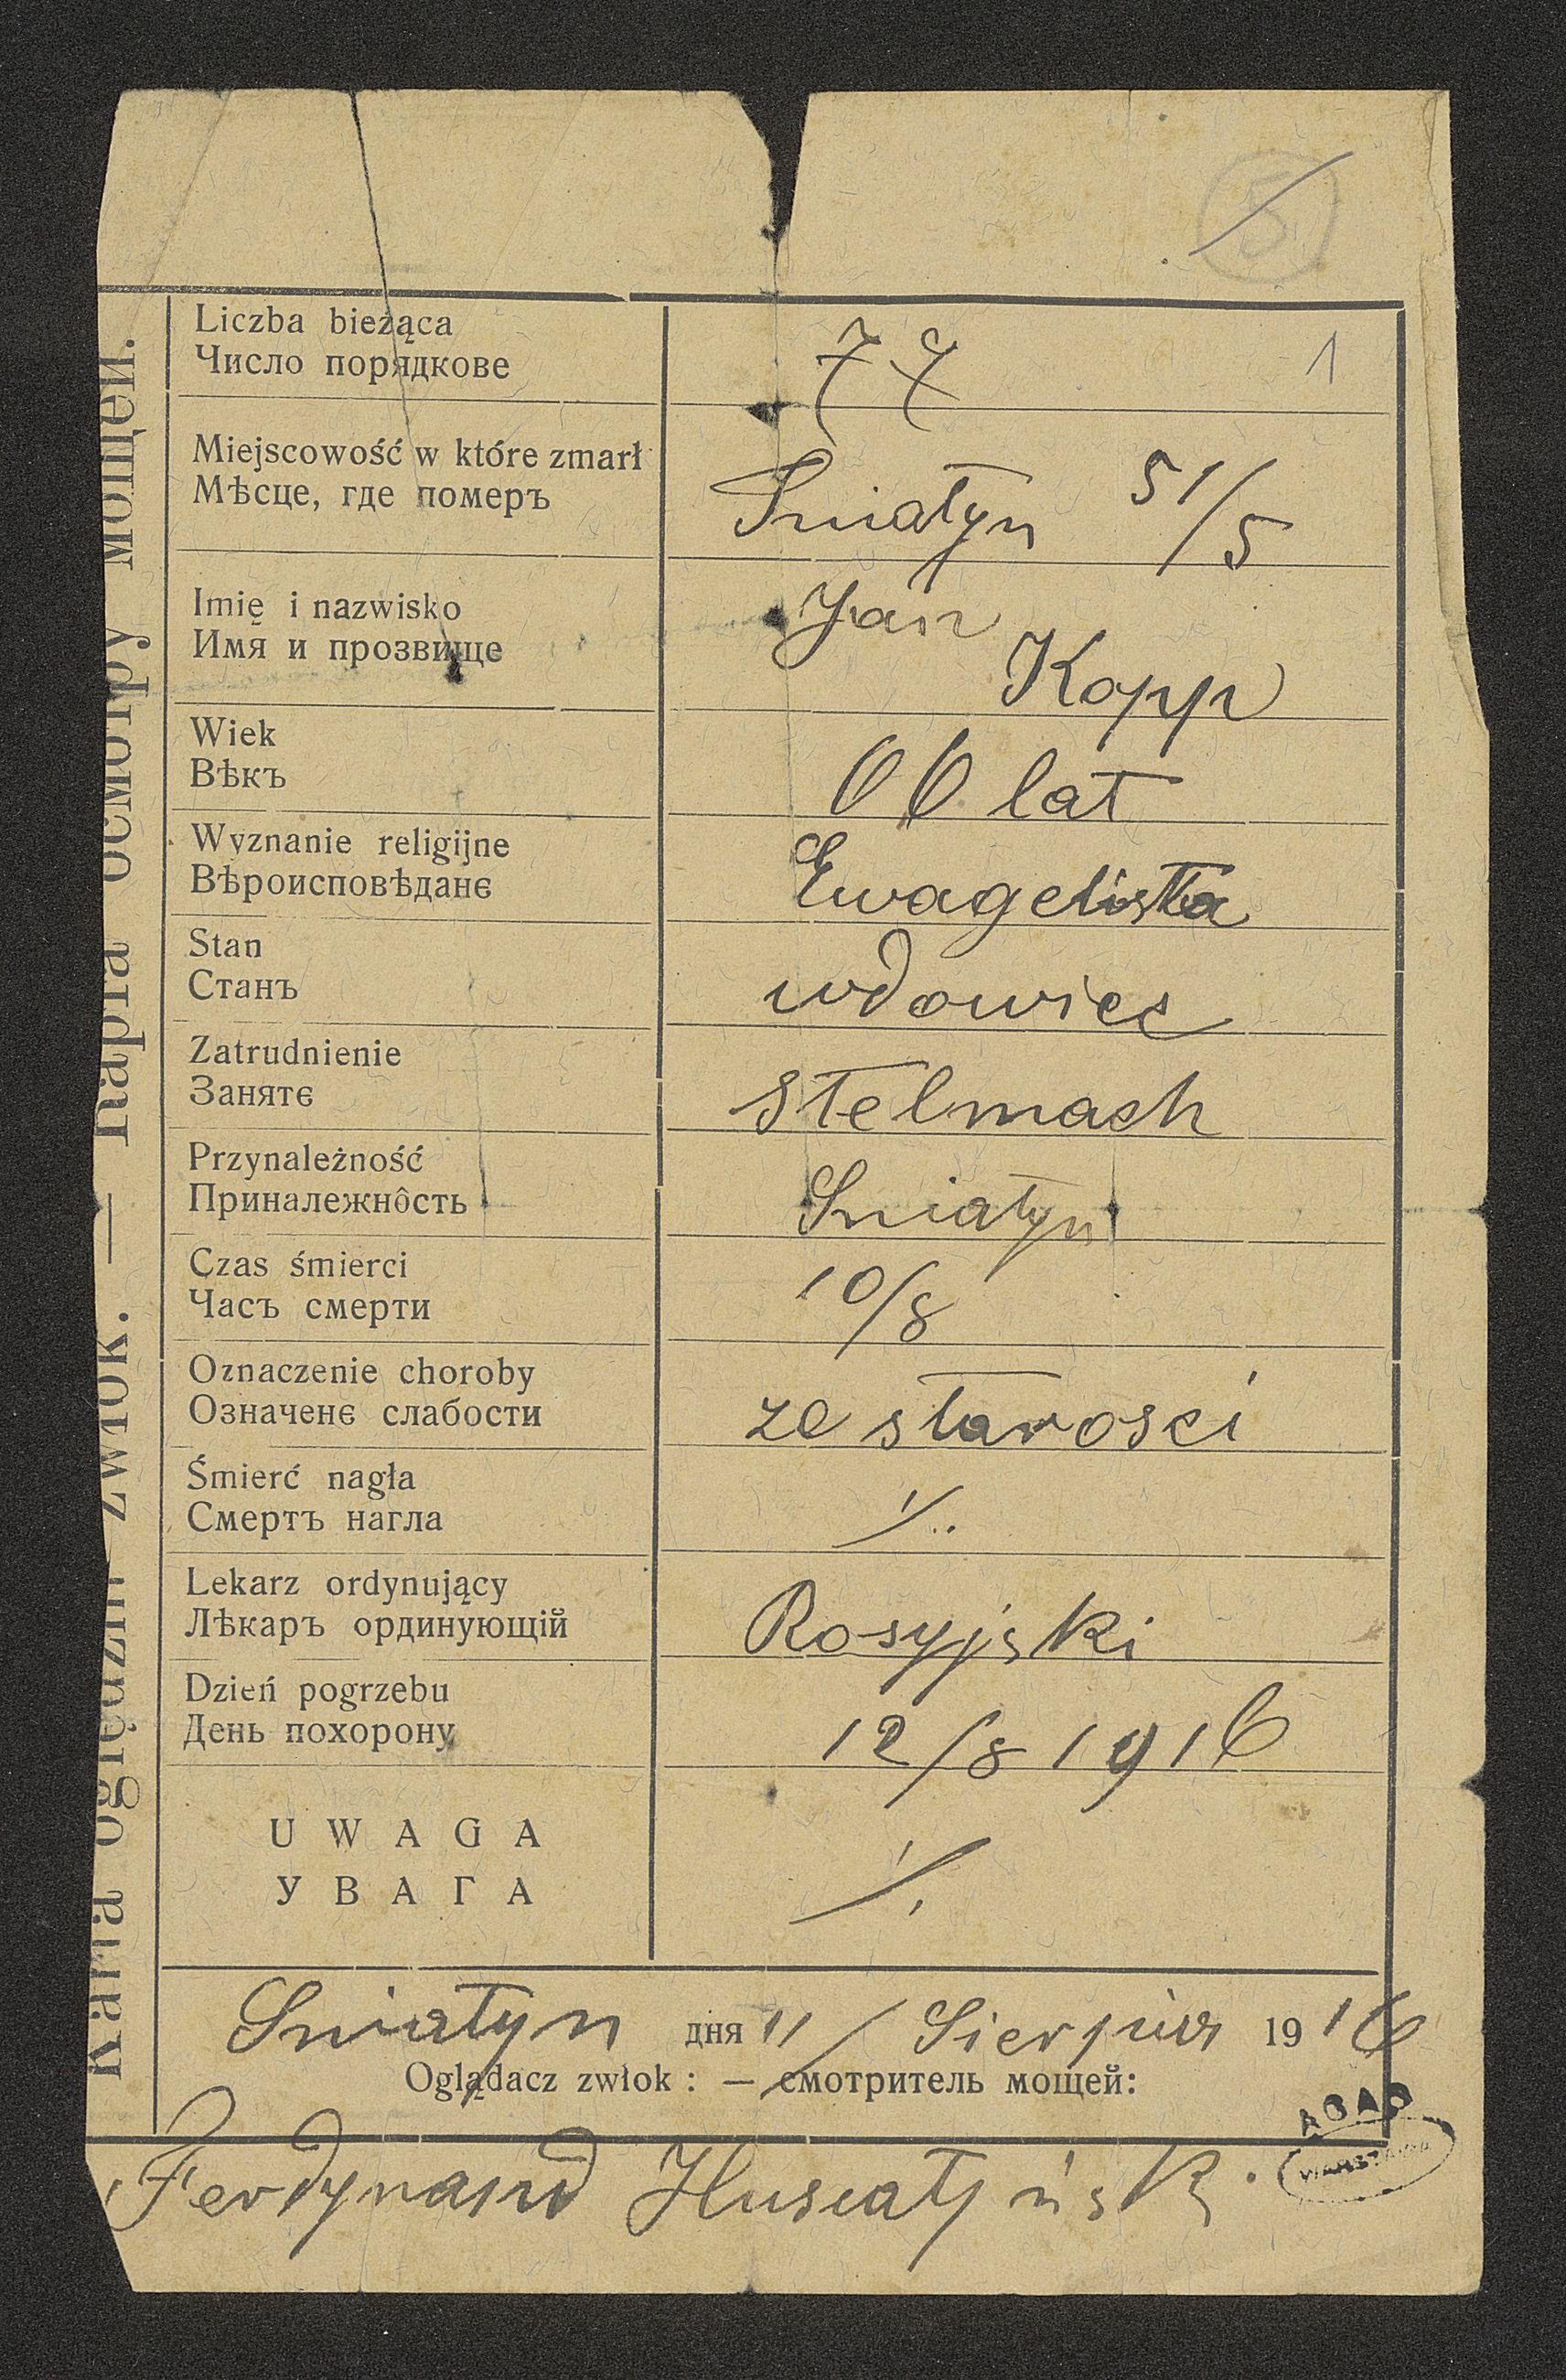 5
Liczba bieżąca
Число порядкове
77
1
Miejscowość w które zmarł
Мѣсце, где померъ
Śniatyn 51/5
Imię i nazwisko
Имя и прозвище
Jan
Kopp
Wiek
Вѣкъ
66 lat
Wyznanie religijne
Вѣроисповѣданє
Ewagelista
Stan
Станъ
wdowiec
Zatrudnienie
Занятє
stelmach
Przynależność
Приналежнôсть
Sniatyn
Czas śmierci
Часъ смерти
10/8
Oznaczenie choroby
Означенє слабости
ze starości
Śmierć nagła
Смерть нагла
Lekarz ordynujący
Лѣкаръ ординующій
Rosyjski
Dzień pogrzebu
День похорону
12/8 1916
UWAGA
УВАГА
Sniatyn дня 11/ Sierpnia 1916
Oglądacz zwłok: — смотритель мощей:
Ferdynand Husiatyński
AGAD
WARSZAWA
Karta oględzin zwłok. — Карта осмотру мощей.